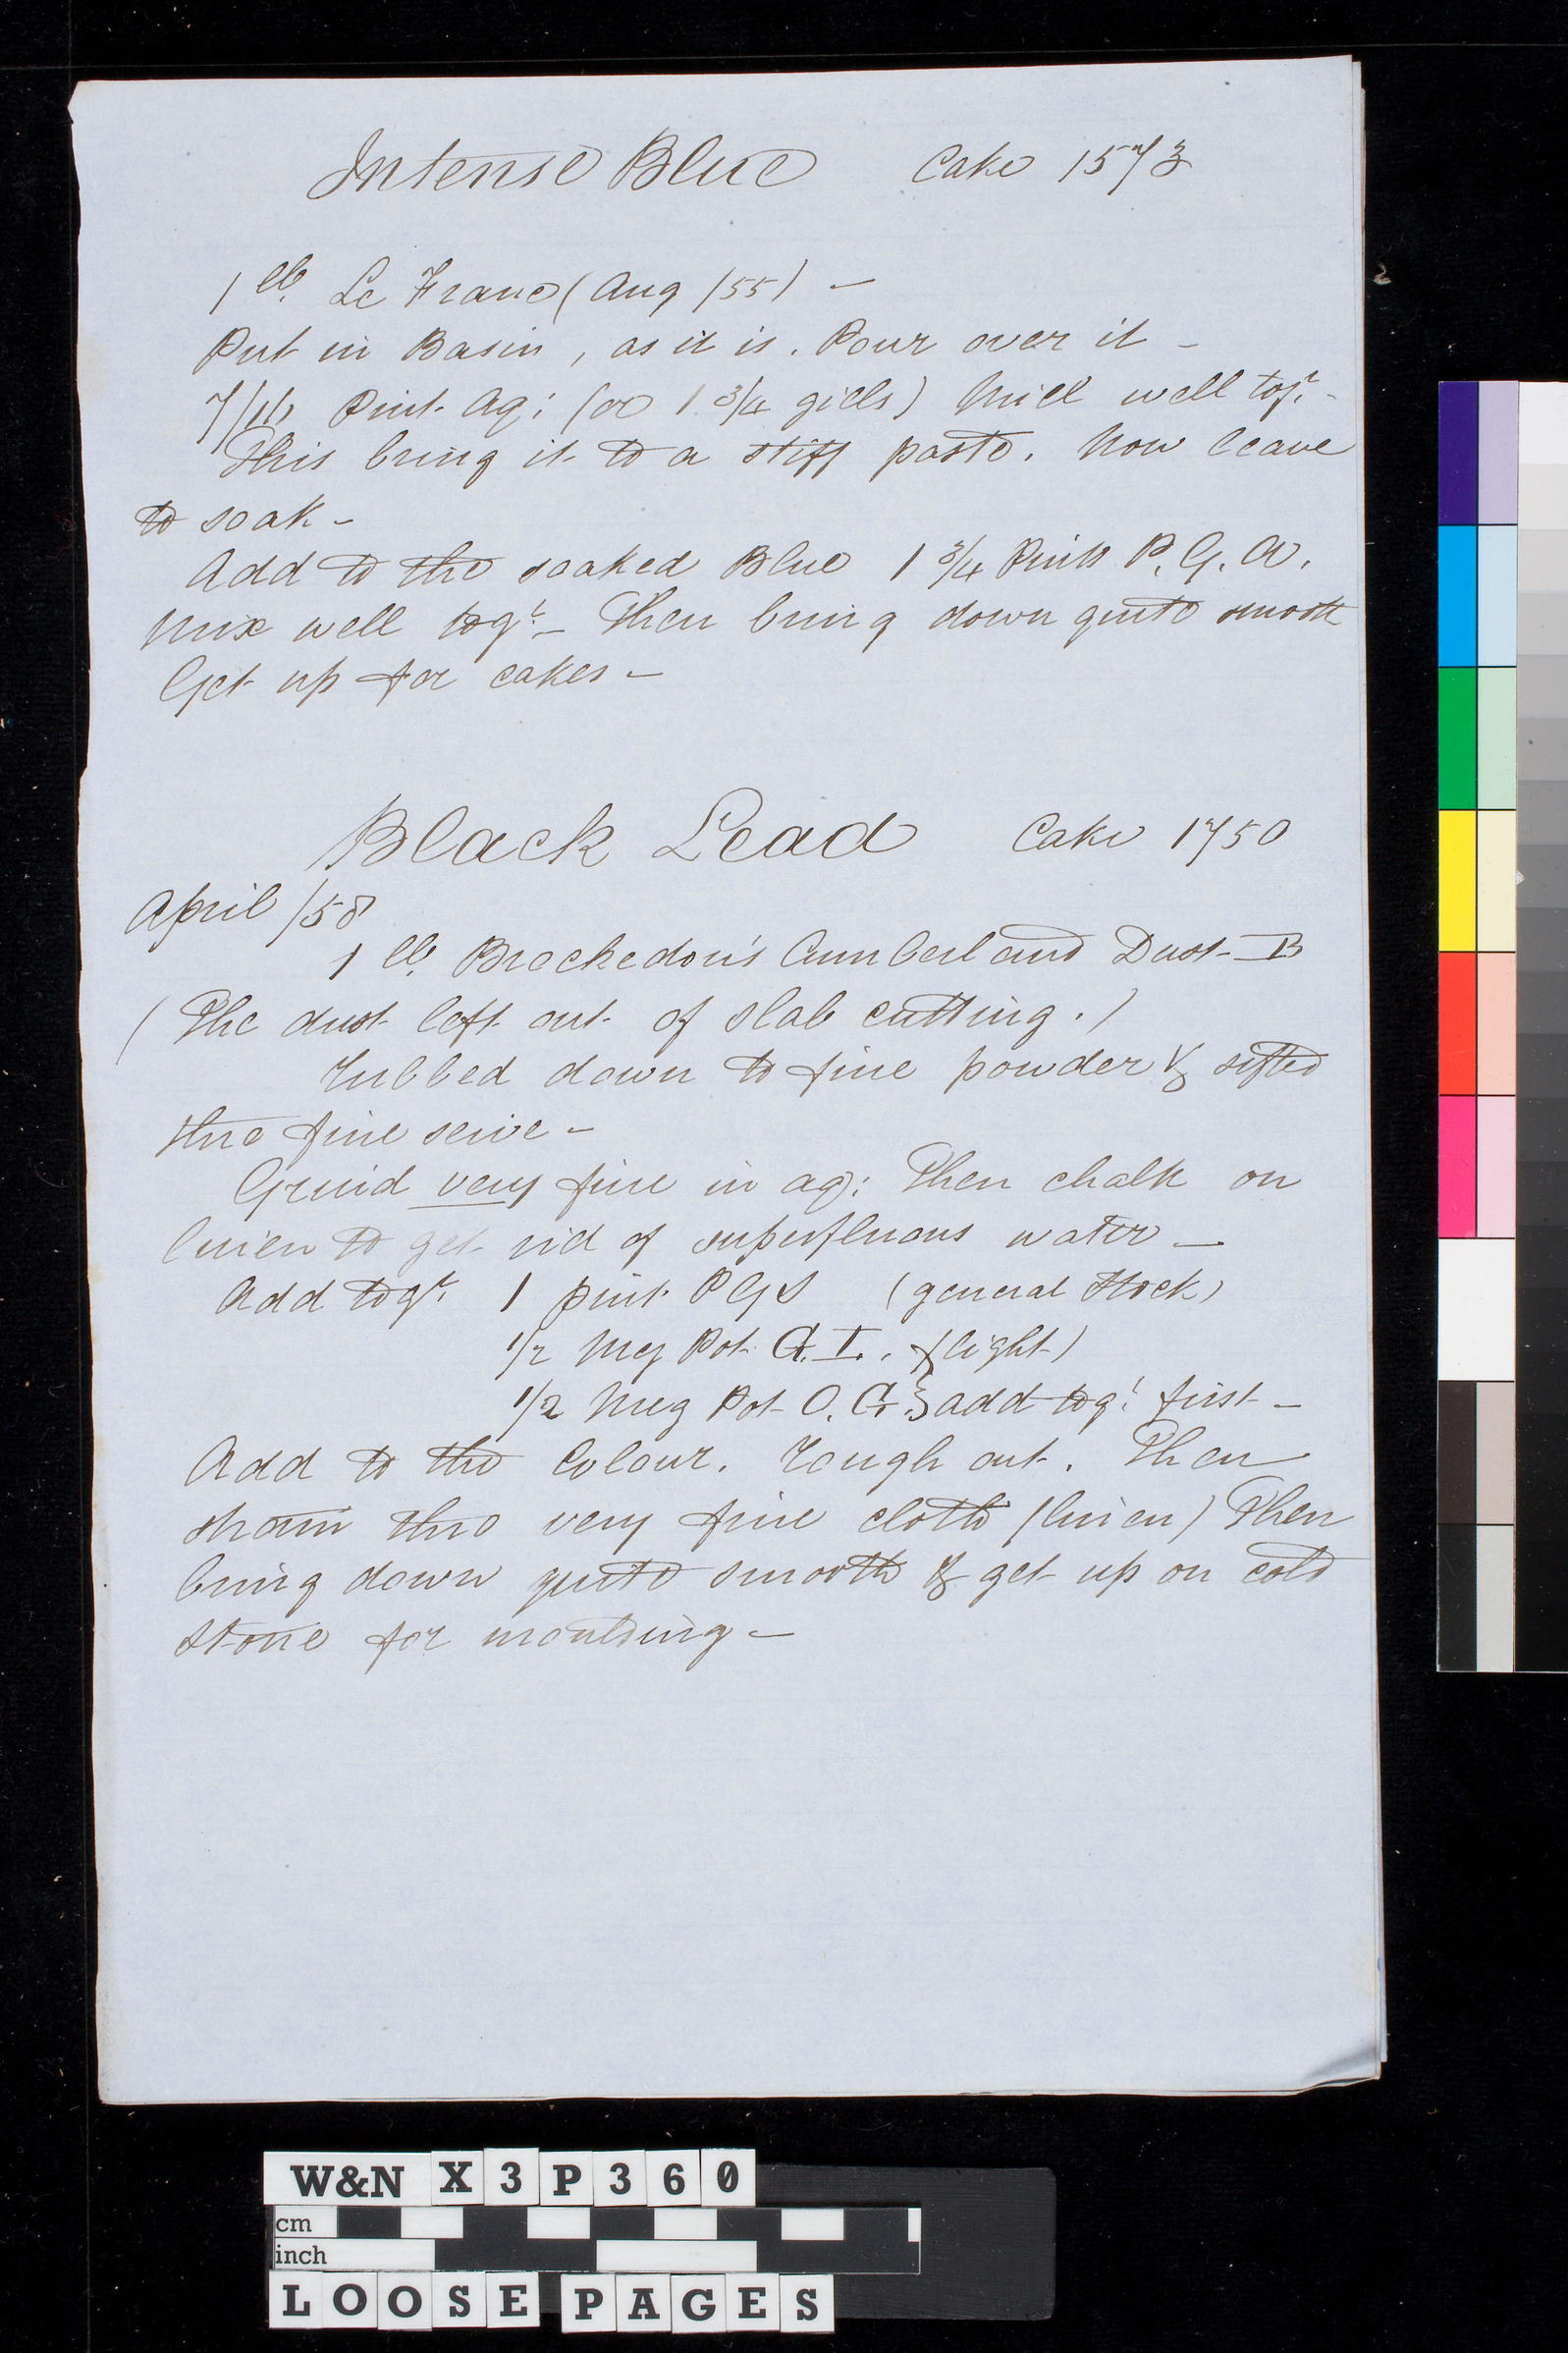 Intense Blue Cake 1573
1 lb. Le Franc (Aug /55) -
Put in Basin, as it is. Pour over it -
7/16 Pint Aq: (or 1 3/4 gills) Mill well togr. -
This bring it to a stiff paste. Now leave
to soak -
Add to the soaked Blue 1 3/4 Pints P. G. A.
Mix well togr. - Then bring down quite smooth
Get up for cakes -
Black Lead Cake 1750
April /58
1 lb. Brockedon's Cumberland Dust - B
(The dust left out of slab cutting.)
Rubbed down to fine powder & sifted
thro fine seive -
Grind very fine in aq: Then chalk on
linen to get rid of superfluous water -
Add togr. 1 pint P G S (general Stock)
1/2 Meg Pot G. T. (light)
1/2 Meg Pot O. G. } add togr. first -
Add to the Colour. Rough out. Then
strain thro very fine cloth (linen) Then
bring down quite smooth & get up on cold
Stone for moulding -
W&N X3P360
cm
inch
LOOSE PAGES